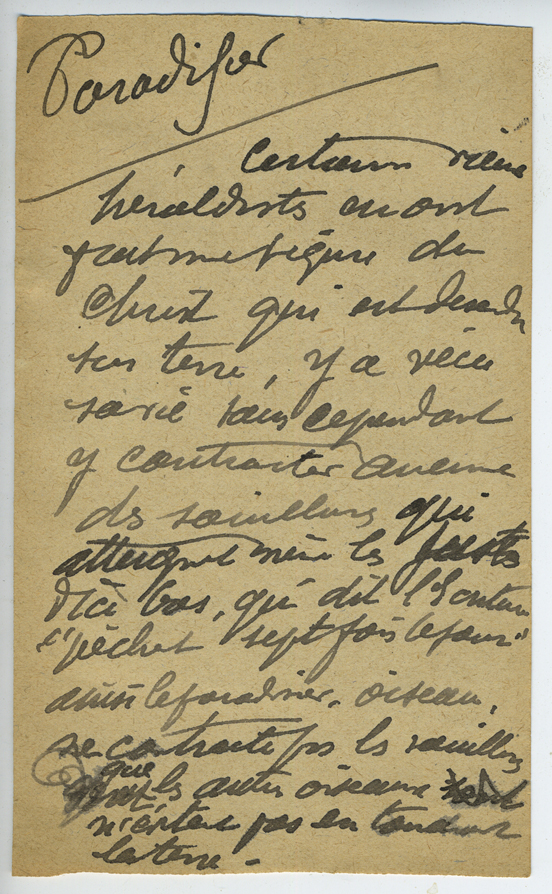 Paradisier
Certains vieux
héraldistes en ont
fait une figure du
Christ qui est descendu
sur terre, y a vécu
sa vie sans cependant
y contracter aucune
des souillures qui
atteignent même les justes
d'ici bas, qui dit l'Ecriture
"pèchent sept fois le jour"
ainsi le paradisier, oiseau,
ne contracte pas les souillures
que les autres oiseaux
n'évitent pas en touchant
la terre -